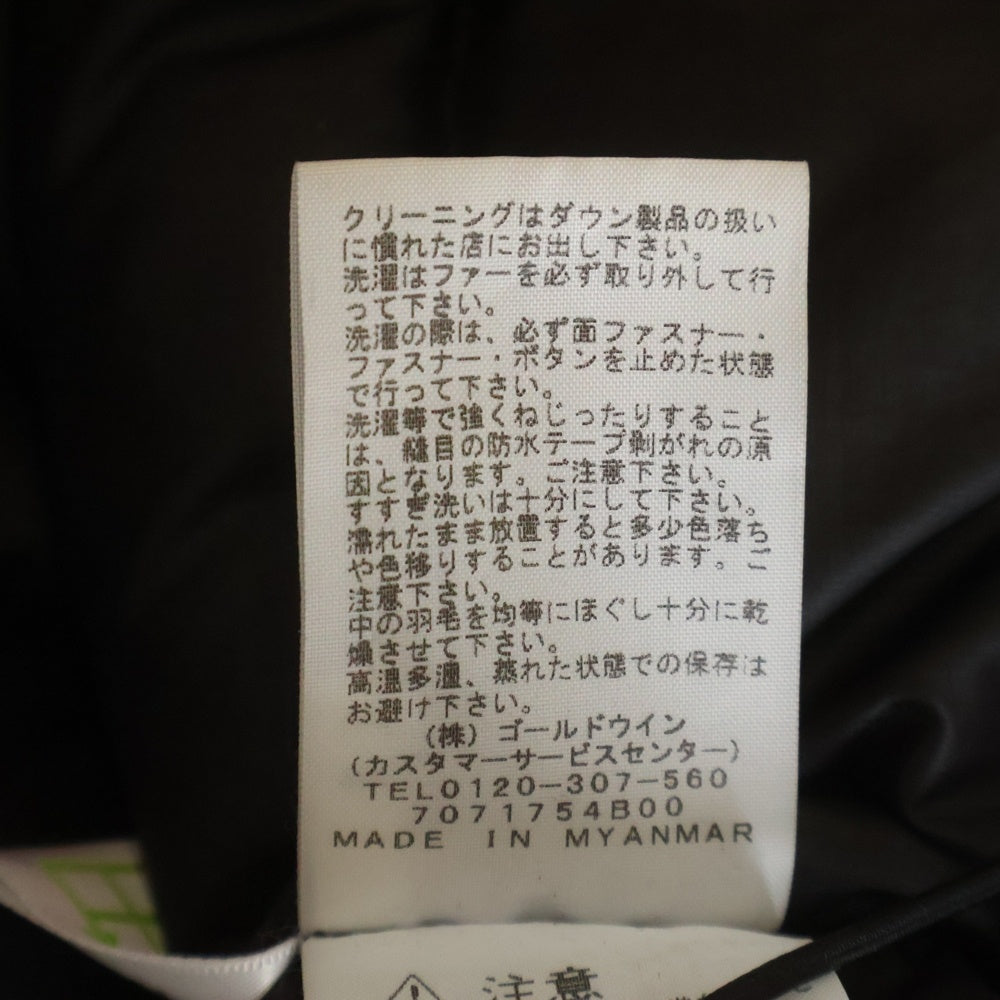 クリーニングはダウン製品の扱い
に慣れた店にお出し下さい。
洗濯はファーを必ず取り外して行
って下さい。
洗濯の際は、必ず面ファスナー・
ファスナー・ボタンを止めた状態
で行って下さい。
洗濯等で強くねじったりすること
は、縫目の防水テープ剥がれの原
因となります。ご注意下さい。
すすぎ洗いは十分にして下さい。
濡れたまま放置すると多少色落ち
や色移りすることがあります。ご
注意下さい。
中の羽毛を均等にほぐし十分に乾
燥させて下さい。
高温多湿、蒸れた状態での保存は
お避け下さい。
(株)ゴールドウイン
(カスタマーサービスセンター)
TEL0120-307-560
7071754B00
MADE IN MYANMAR
注意